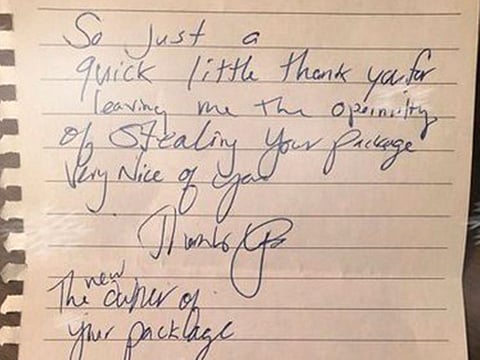 So Just a
quick little thank you for
leaving me the
of Stealing Your package
Very Nice of you
Thanks
The new owner of
your package